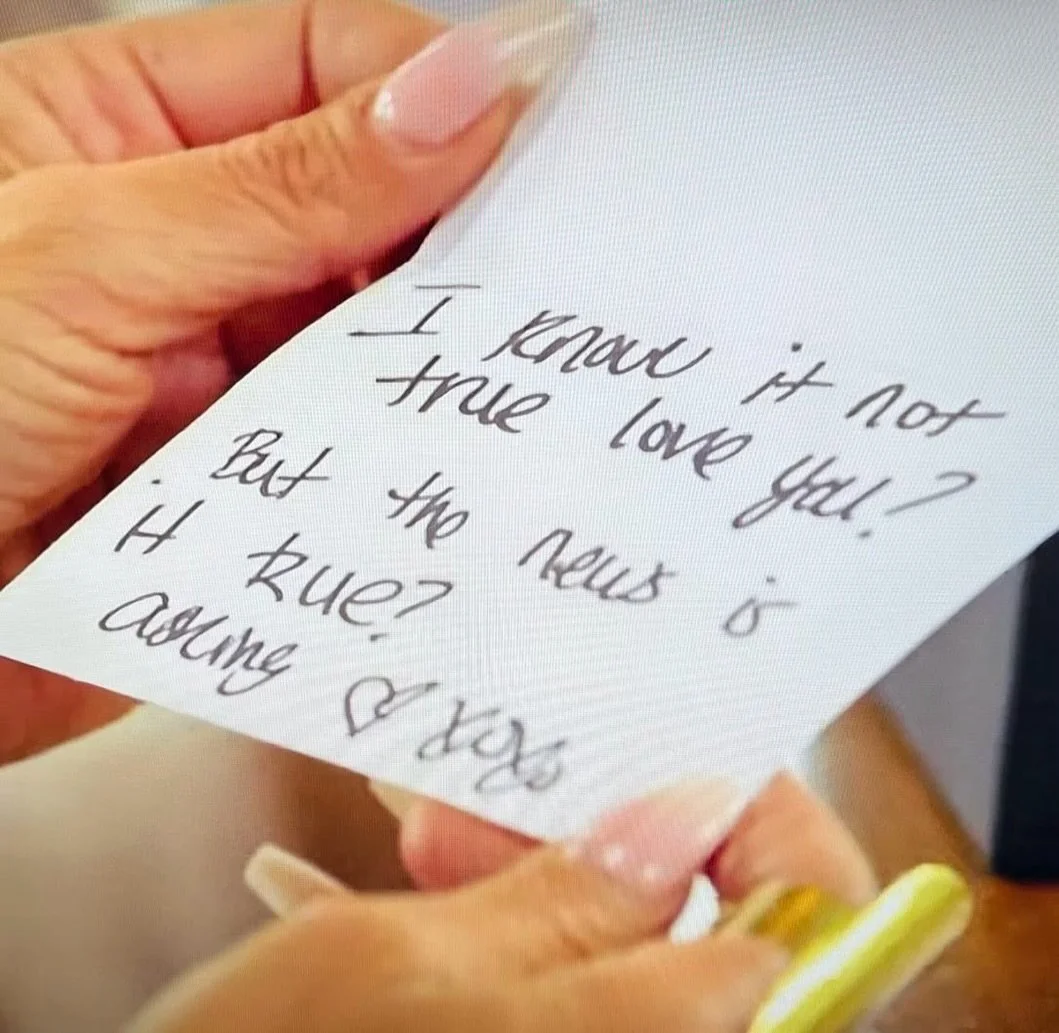 I know it not
true love you?
But the news is
it true?
asking ♡ xoxo